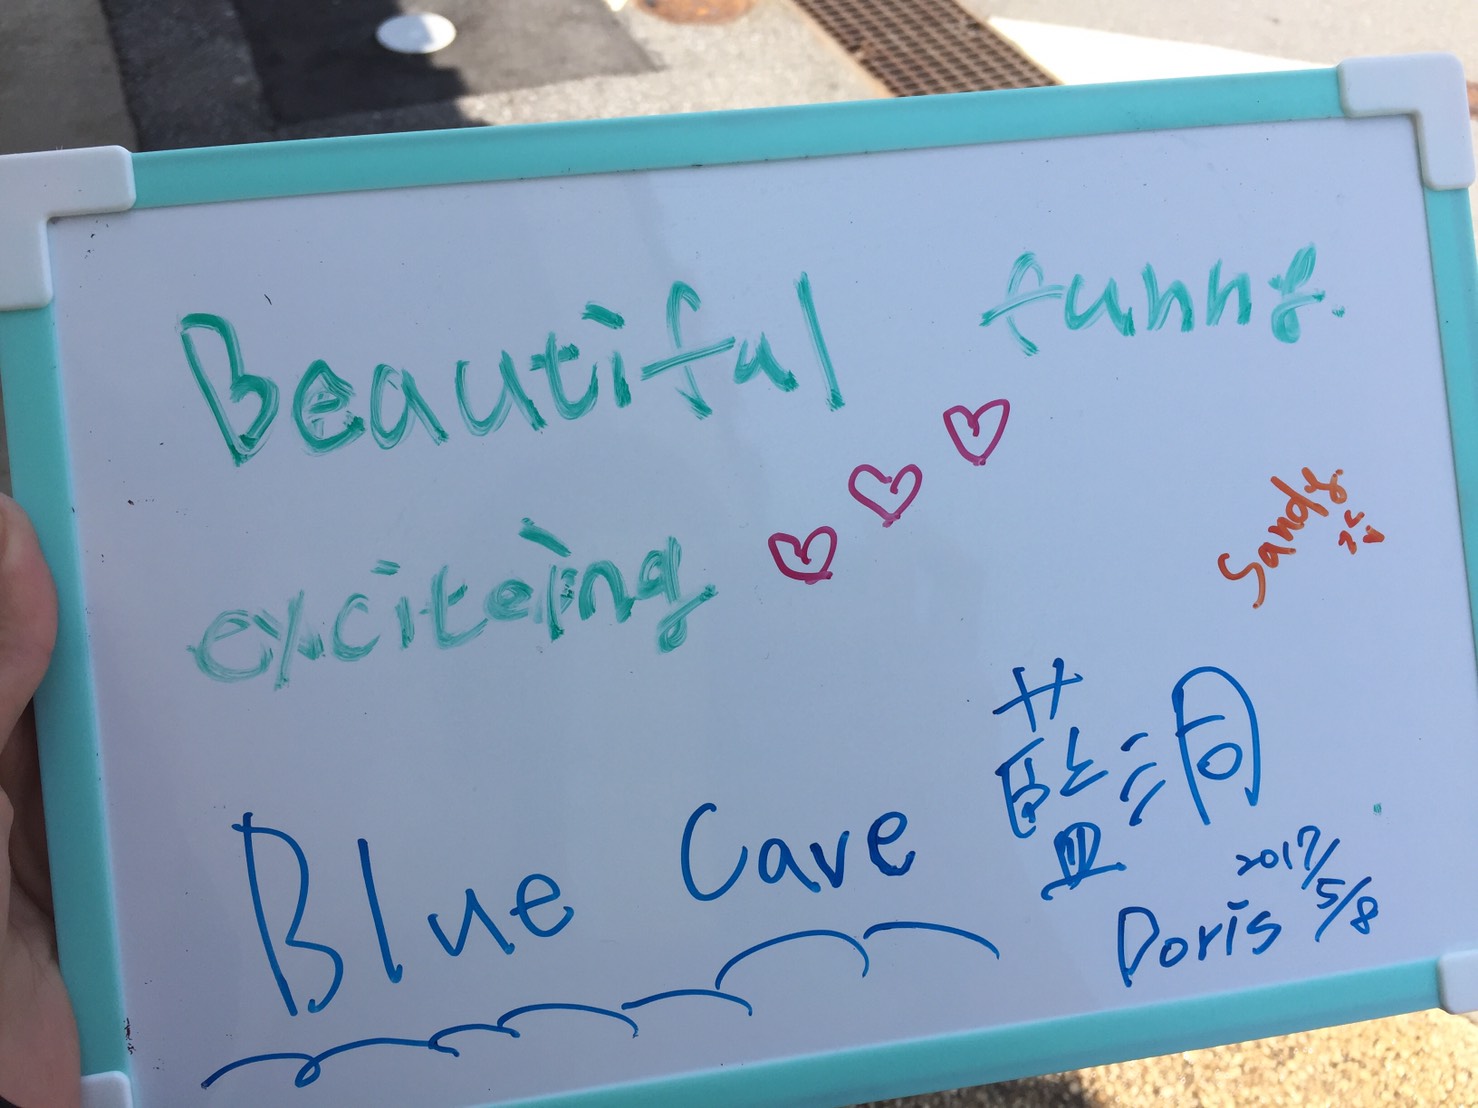 Beautiful funny.
exciteing
Sandy
Blue Cave 藍洞
2017/5/8
Doris